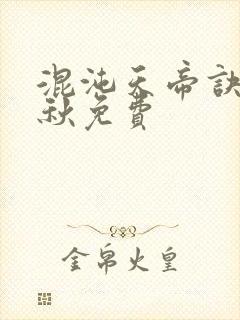 混沌天帝訣
秋免費
金帛火皇